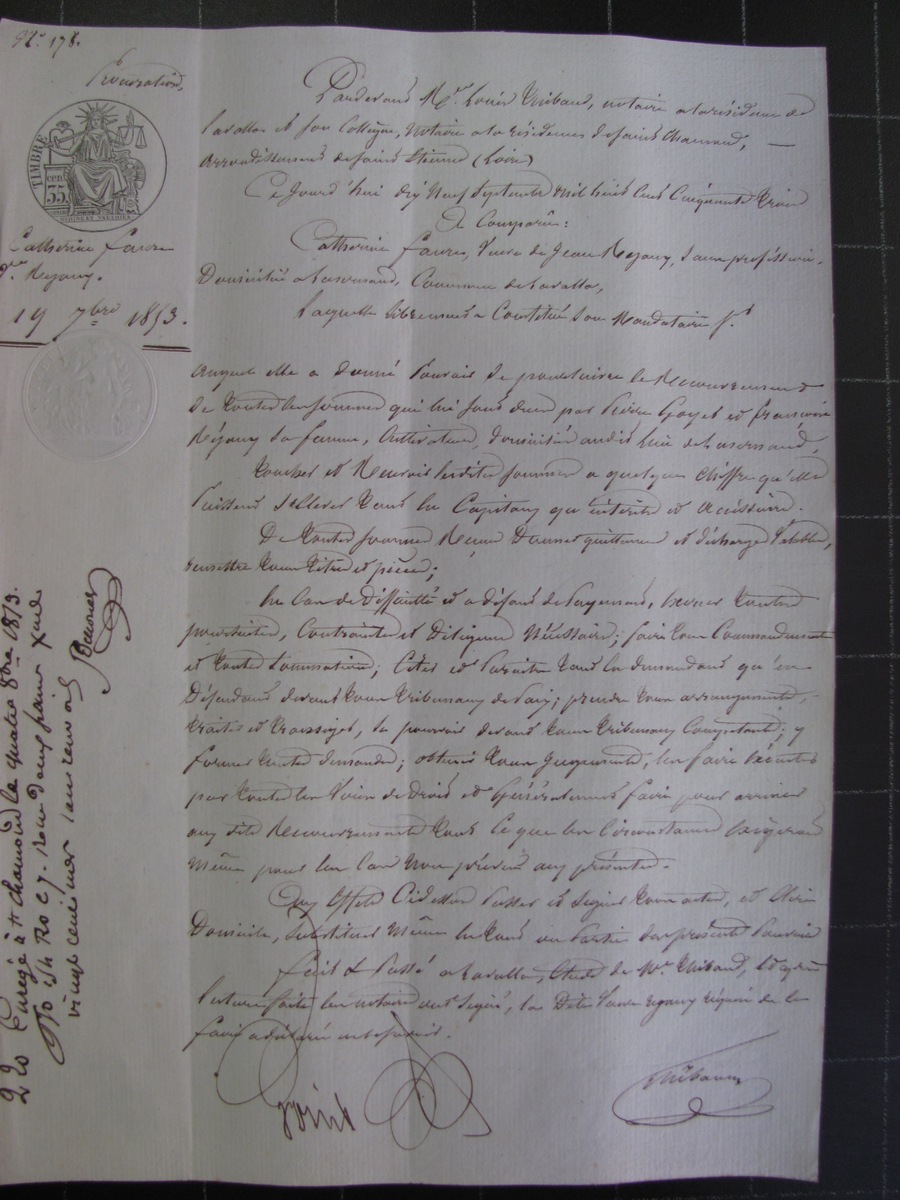 N.° 178.
Procuration,
TIMBRE
cent 35
Catherine Faure
V.ve Rejany.
19 7bre 1853.
Pardevant M.e Louis Thibaud, notaire à la résidence de
Lavalla et son Collègue, Notaire à la résidence de Saint Chamond,
Arrondissement de Saint Etienne (Loire)
Ce Jourd'hui dix Neuf Septembre Mil huit Cent Cinquante Trois
A Comparu:
Catherine Faure, Veuve de Jean Rejany, Sans profession,
Domiciliée à Commune de Lavalla,
Laquelle librement a Constitué Son Mandataire
Auquel elle a donné Pouvoir de poursuivre le Recouvrement
De toutes les Sommes qui lui sont dues par Pierre Goyet et Françoise
Réjany Sa femme, Cultivateurs, domiciliés audit lieu de
Toucher et Recevoir lesdites Sommes a quelques Chiffres qu'elles
Puissent S'élever tant en Capitaux qu'intérêts et Accéssoires.
De toutes Sommes Recues Donner quittances et décharges Valables,
remettre tous titres et pièces;
En Cas de Difficultés et a défaut de Payement, Exercer toutes
poursuites, Contraintes et Diligences Nécéssaires; faire tous Commandements
et toutes Sommations; Citer et Paraitre tant en demandant qu'en
Défendant devant tous Tribunaux de Paix; prendre tous arrangements,
traiter et transiger, Se pourvoir devant tous Tribunaux Compétents; y
former toutes demandes; obtenir tous Jugements, les faire Exécuter
par toutes les Voies de Droit et Généralement faire pour arriver
aux dits Recouvrements tout Ce que les Circonstances Exigeront
Même pour les Cas Non prévus aux présentes.
Aux Effets Cidessus Passer et Signer tous actes, et Elire
Domicile, Substituer Même en tout ou Partie des présents Pouvoirs
Fait & Passé a Lavalla, Etude de M.e Thibaud, Et après
Lecture faite les notaires ont Signé, la Dite Veuve Rejany réquise de le
faire a déclaré
Thibaud
Enregé à St Chamond le quatre 8bre 1853.
fo R.o C 7. Reçu deux francs
vingt centimes